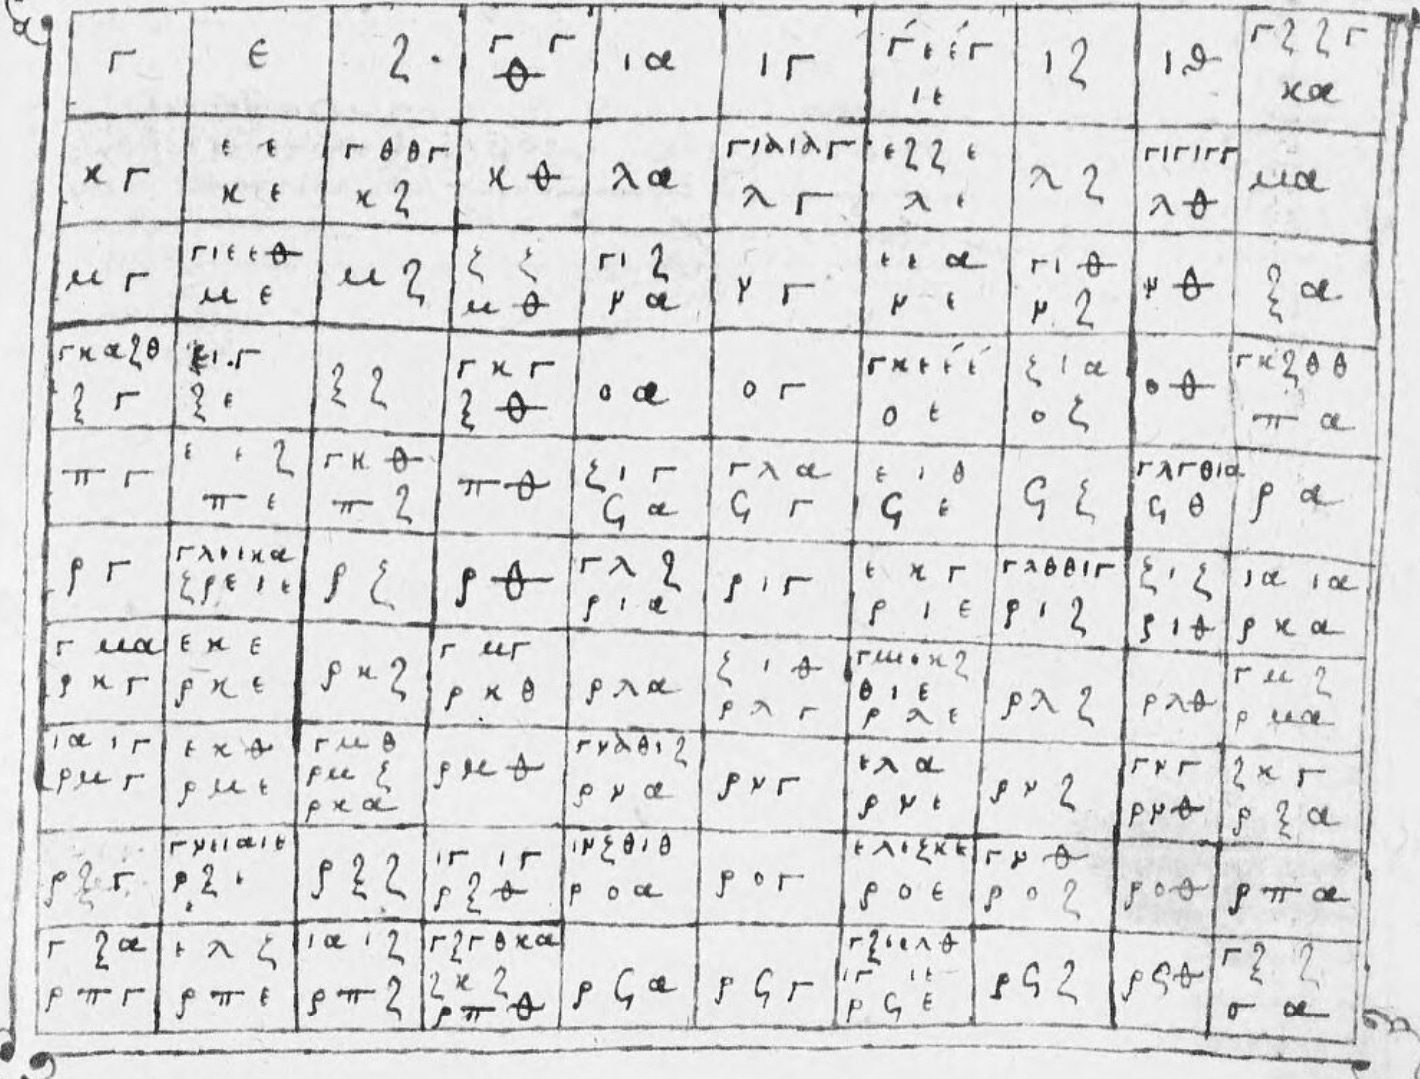 γ
ε
ζ
γ γ
θ
ια
ιγ
γ ε ε γ
ιε
ιζ
ιθ
γ ζ ζ γ
κα
κγ
ε ε
κε
γ θ θ γ
κζ
κθ
λα
γ ια ια γ
λγ
ε ζ ζ ε
λε
λζ
γ ιγ ιγ γ
λθ
μα
μγ
γ ιε ε θ
με
μζ
ζ ζ
μθ
γ ιζ
να
νγ
ε ια
νε
γ ιθ
νζ
νθ
ξα
γ κα ζ θ
ξγ
ε ιγ
ξε
ξζ
γ κγ
ξθ
οα
ογ
γ κε ε ιε
οε
ζ ια
οζ
οθ
γ κζ θ θ
πα
πγ
ε ιζ
πε
γ κθ
πζ
πθ
ζ ιγ
ϟα
γ λα
ϟγ
ε ιθ
ϟε
ϟζ
γ λγ θ ια
ϟθ
ρα
ργ
γ λε ε κα
ζ ιε ρε
ρζ
ρθ
γ λζ
ρια
ριγ
ε κγ
ριε
γ λθ θ ιγ
ριζ
ζ ιζ
ριθ
ια ια
ρκα
γ μα
ρκγ
ε κε
ρκε
ρκζ
γ μγ
ρκθ
ρλα
ζ ιθ
ρλγ
γ με ε κζ
θ ιε
ρλε
ρλζ
ρλθ
γ μζ
ρμα
ια ιγ
ρμγ
ε κθ
ρμε
γ μθ
ρμζ
ρκα
ρμθ
γ να θ ιζ
ρνα
ρνγ
ε λα
ρνε
ρνζ
γ νγ
ρνθ
ζ κγ
ρξα
ρξγ
γ νε ια ιε
ρξε
ρξζ
ιγ ιγ
ρξθ
γ νζ θ ιθ
ροα
ρογ
ε λε ζ κε
ροε
γ νθ
ροζ
ροθ
ρπα
γ ξα
ρπγ
ε λζ
ρπε
ια ιζ
ρπζ
γ ξγ θ κα
ζ κζ
ρπθ
ρϟα
ρϟγ
γ ξε ε λθ
ιγ ιε
ρϟε
ρϟζ
ρϟθ
γ ξζ
σα